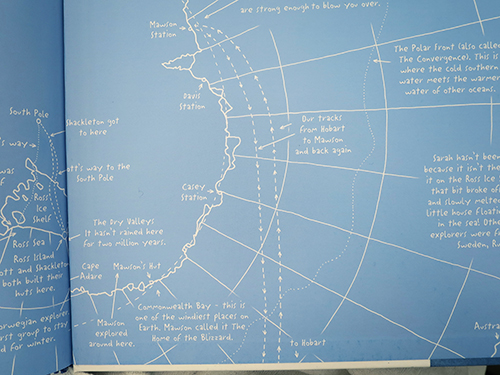 are strong enough to blow you over.
Mawson
Station
The Polar Front (also called
The Convergence). This is
where the cold southern
water meets the warmer
water of other oceans.
Davis
Station
South Pole
Shackleton got
to here
Our tracks
from Hobart
to Mawson
and back again
way
way to the
South Pole
Sarah hasn't been
because it isn't the
it on the Ross Ic
that bit broke of
and slowly melted
little house floatin
in the sea! Othe
explorers were f
Sweden,
Casey
Station
Ross
Ice
Shelf
The Dry Valleys
It hasn't rained here
for two million years.
Ross Sea
Ross Island
ott and Shackleton
both built their
huts here.
Cape
Adare
Mawson's Hut
Commonwealth Bay - this is
one of the windiest places on
Earth. Mawson called it The
Home of the Blizzard.
Mawson
explored
around here.
orwegian explorer
rst group to stay
d for winter.
to Hobart
Austra